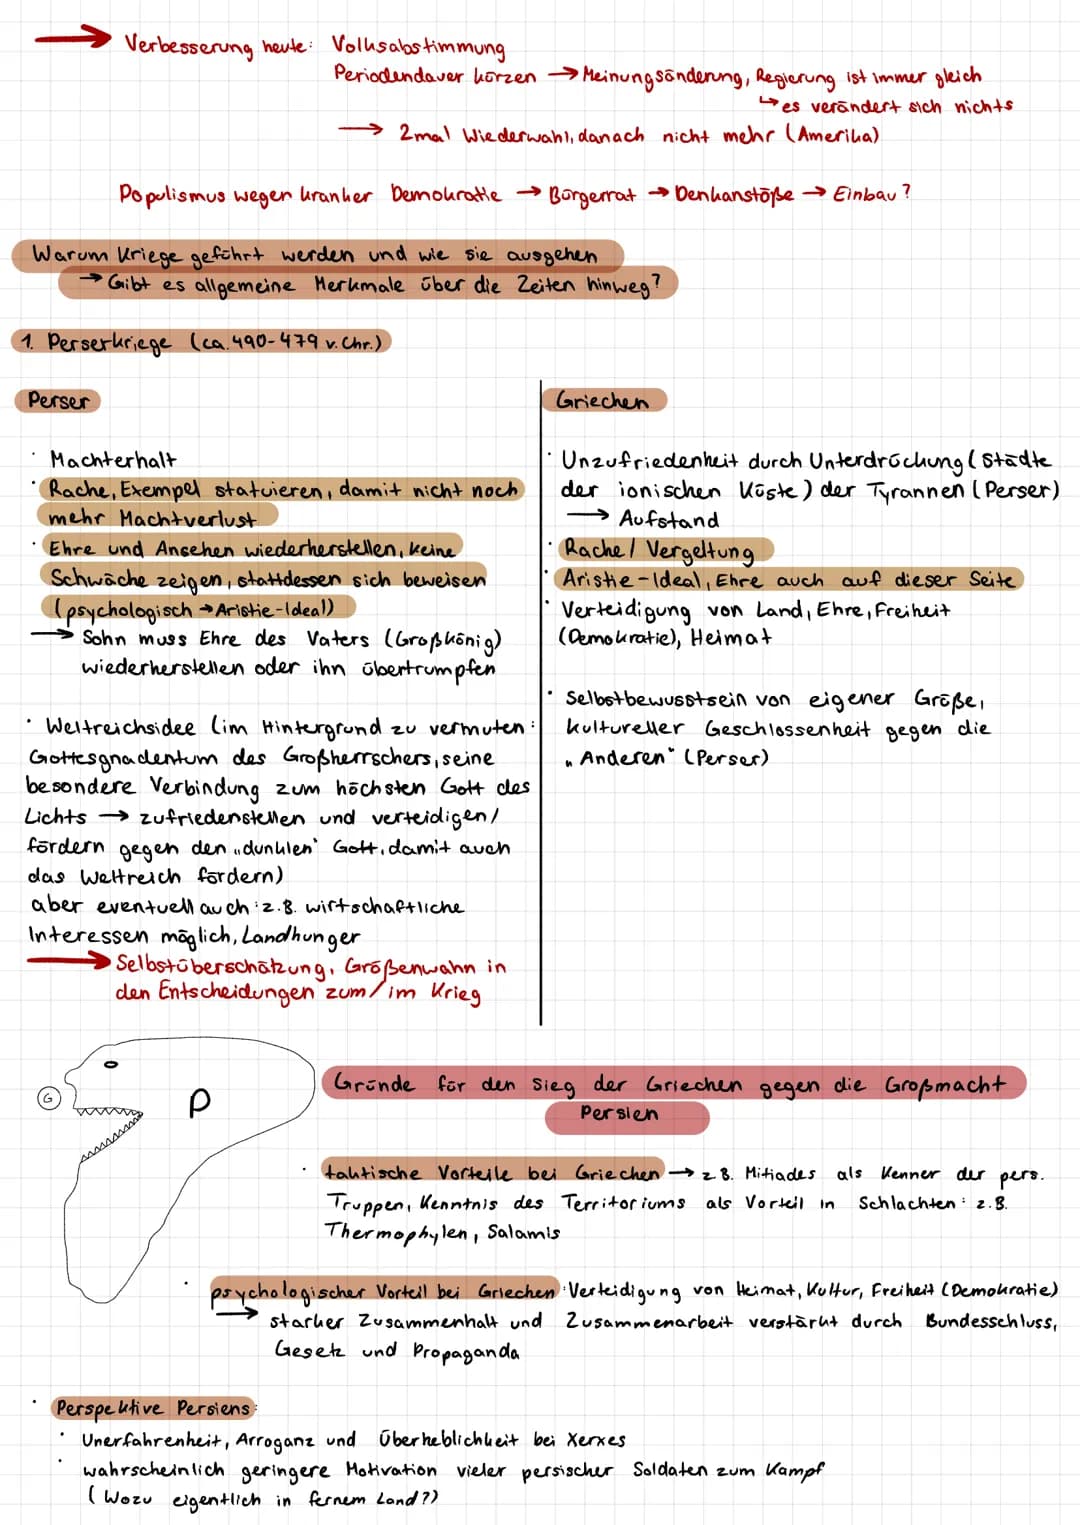 → Verbesserung heute: Volksabstimmung
Periodendauer kürzen → Meinungsänderung, Regierung ist immer gleich
↳ es verändert sich nichts
→ 2mal Wiederwahl, danach nicht mehr (Amerika)
Populismus wegen kranker Demokratie → Bürgerrat → Denkanstöße → Einbau?
Warum Kriege geführt werden und wie sie ausgehen
→ Gibt es allgemeine Merkmale über die Zeiten hinweg?
1. Perserkriege (ca. 490-479 v. Chr.)
Perser
· Machterhalt
· Rache, Exempel statuieren, damit nicht noch
mehr Machtverlust
· Ehre und Ansehen wiederherstellen, keine
Schwäche zeigen, stattdessen sich beweisen
(psychologisch → Aristie-Ideal)
→ Sohn muss Ehre des Vaters (Großkönig)
wiederherstellen oder ihn übertrumpfen
· Weltreichsidee (im Hintergrund zu vermuten:
Gottesgnadentum des Großherrschers, seine
besondere Verbindung zum höchsten Gott des
Lichts → zufriedenstellen und verteidigen/
fördern gegen den „dunklen" Gott, damit auch
das Weltreich fördern)
aber eventuell auch: z.B. wirtschaftliche
Interessen möglich, Landhunger
→ Selbstüberschätzung, Größenwahn in
den Entscheidungen zum/im Krieg
Griechen
· Unzufriedenheit durch Unterdrückung (Städte
der ionischen Küste) der Tyrannen (Perser)
→ Aufstand
· Rache/Vergeltung
· Aristie-Ideal, Ehre auch auf dieser Seite
· Verteidigung von Land, Ehre, Freiheit
(Demokratie), Heimat
· Selbstbewusstsein von eigener Größe,
kultureller Geschlossenheit gegen die
„Anderen" (Perser)
G
P
Gründe für den Sieg der Griechen gegen die Großmacht
Persien
· taktische Vorteile bei Griechen → z.B. Mitiades als Kenner der pers.
Truppen, Kenntnis des Territoriums als Vorteil in Schlachten: z.B.
Thermophylen, Salamis
· psychologischer Vorteil bei Griechen: Verteidigung von Heimat, Kultur, Freiheit (Demokratie)
→ starker Zusammenhalt und Zusammenarbeit verstärkt durch Bundesschluss,
Gesetz und Propaganda
· Perspektive Persiens:
· Unerfahrenheit, Arroganz und Überheblichkeit bei Xerxes
· wahrscheinlich geringere Motivation vieler persischer Soldaten zum Kampf
(Wozu eigentlich in fernem Land?)